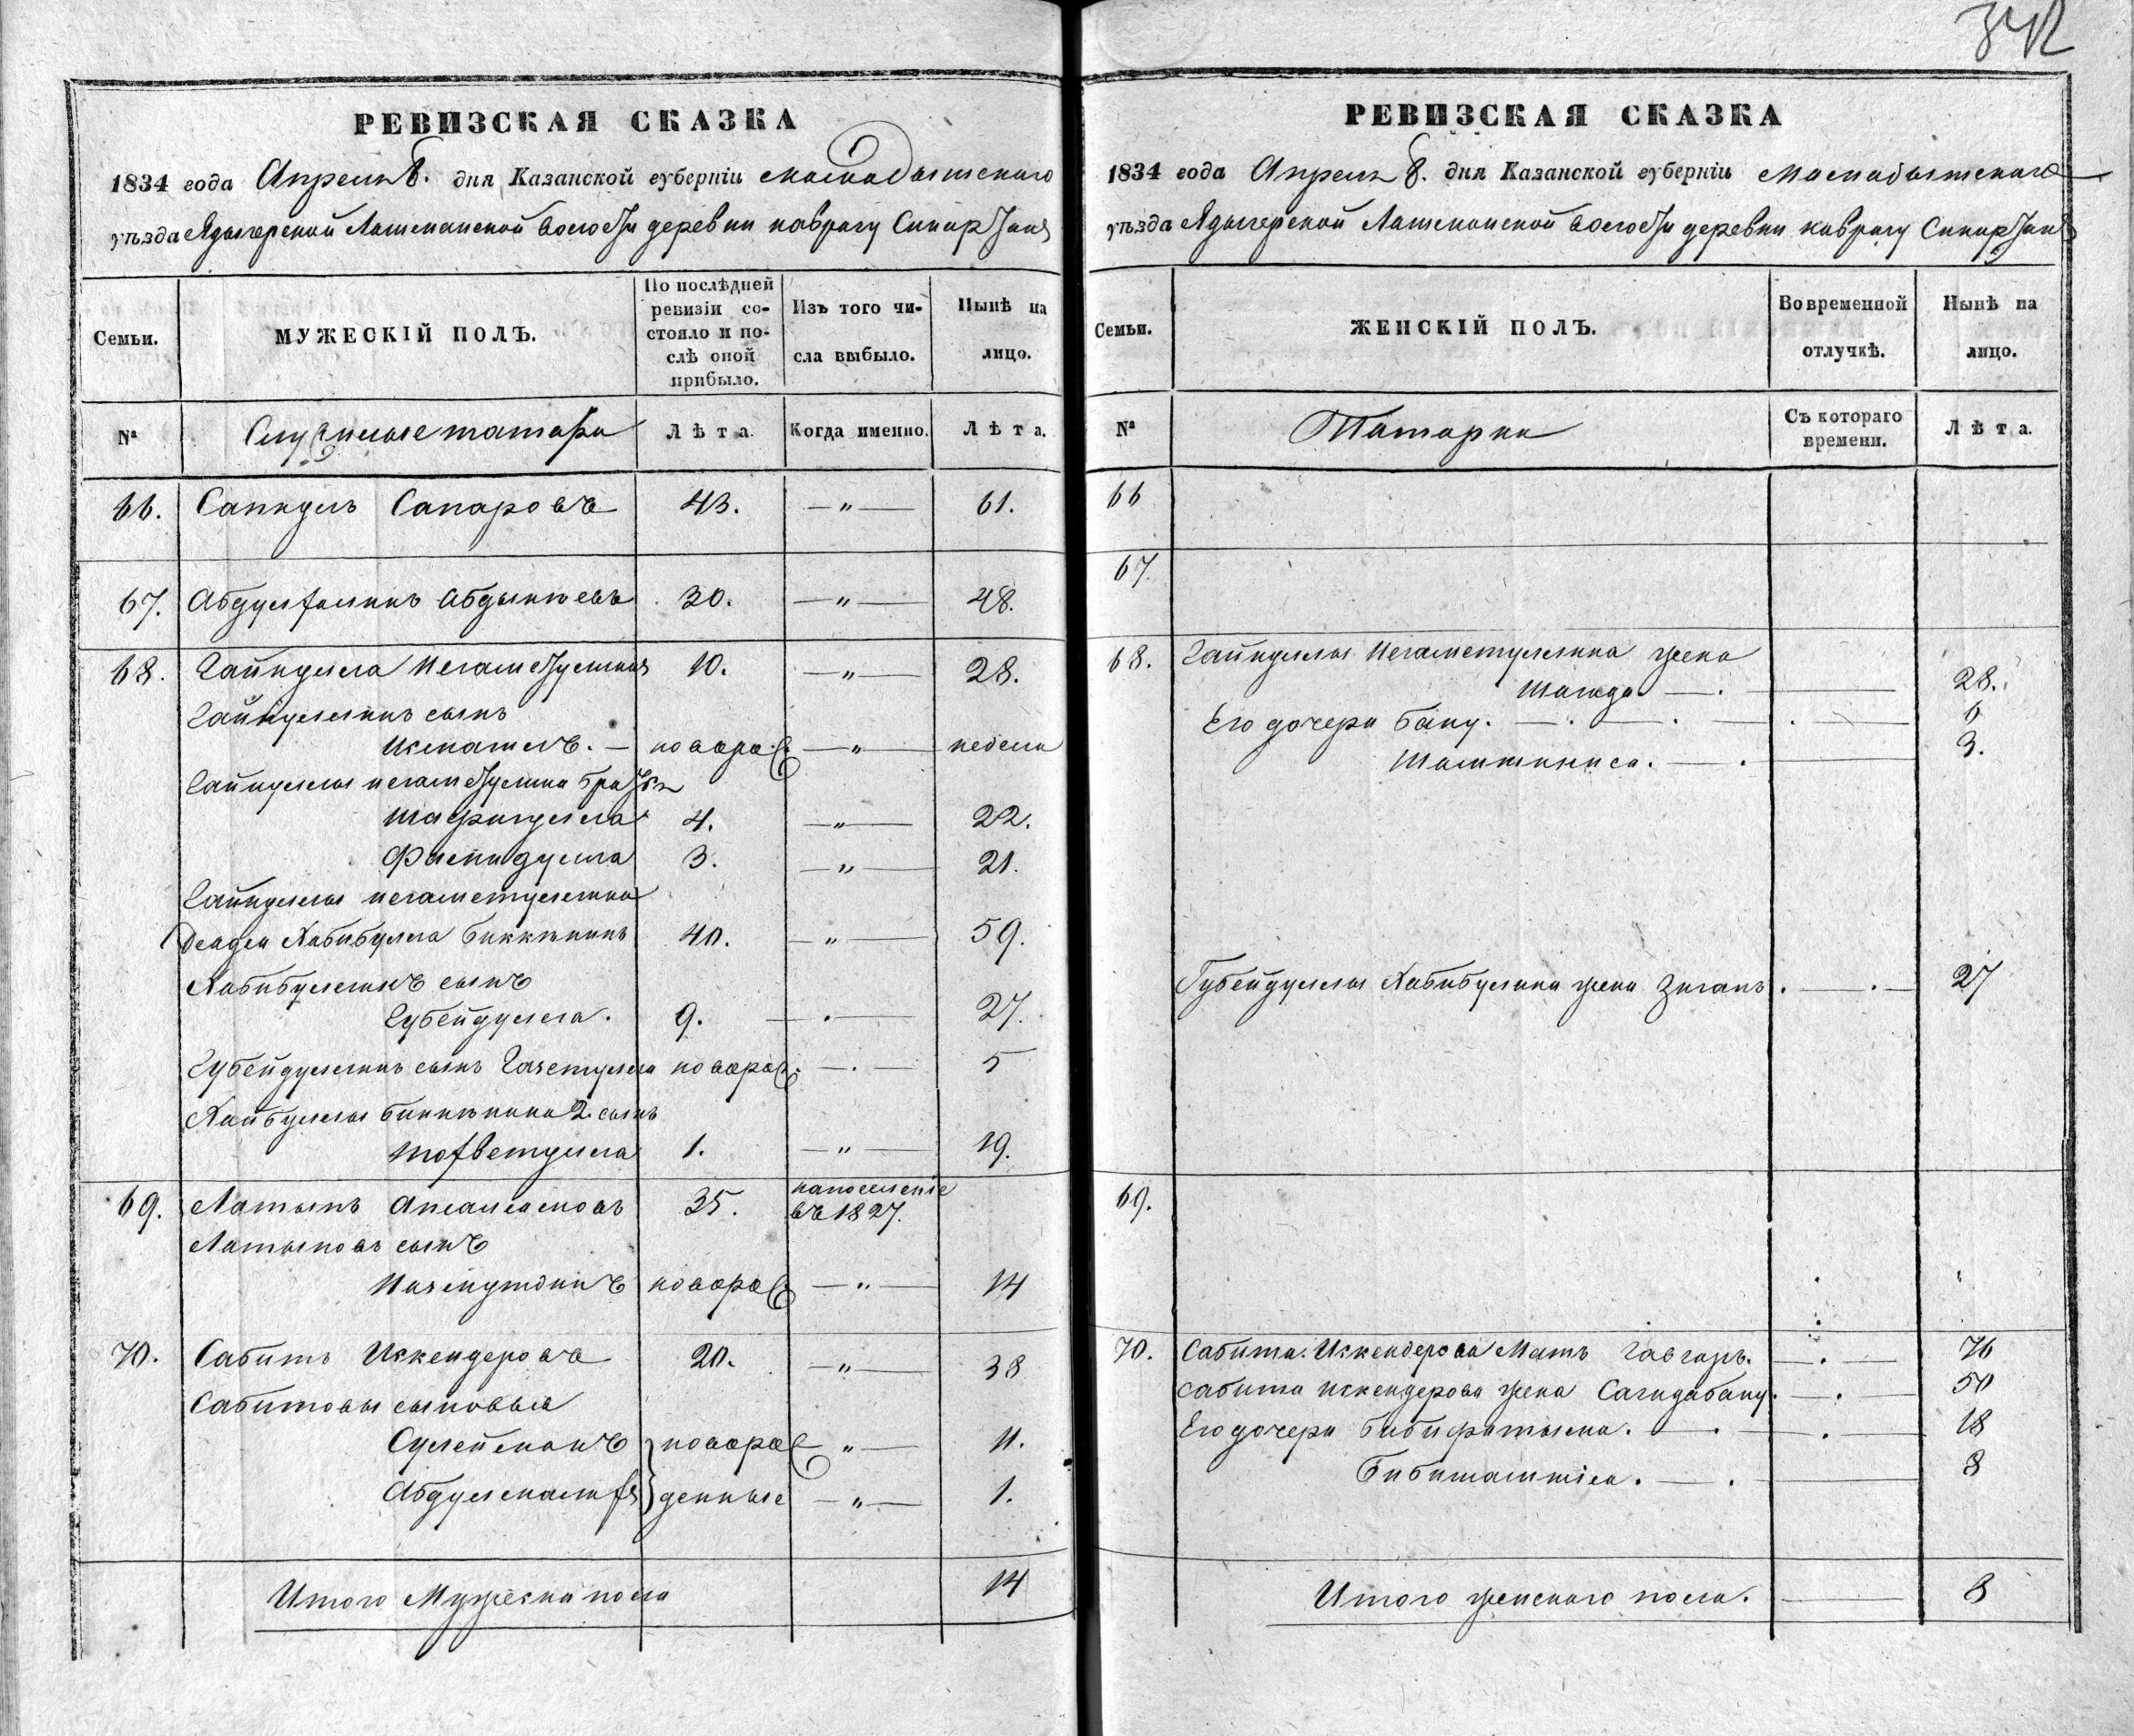 342
РЕВИЗСКАЯ СКАЗКА
1834 года Апреля 8. дня Казанской губерніи Мамадышскаго
уѣзда Ядыгерской Лашманской волости деревни
МУЖЕСКІЙ ПОЛЪ.
Семьи.
По послѣдней ревизіи состояло и послѣ оной прибыло.
Изъ того числа выбыло.
Нынѣ на лицо.
№
Служилые татары
Лѣта.
Когда именно.
Лѣта.
66. Сапкулъ Сапаровъ 43. —"— 61.
67. 30. —"— 48.
68. Гайнулла Негаметуллинъ 10. —"— 28.
Гайнуллинъ сынъ
Исматилъ. — новорож. —"— недели
Гайнуллы Негаметуллина братья
Шафигулла 4. —"— 22.
3. —"— 21.
Гайнуллы Негаметуллина
дядя Хабибулла Биккининъ 40. —"— 59.
Хабибуллинъ сынъ
Губейдулла. 9. — . — 27.
Губейдуллинъ сынъ новорож. — . — 5
Хабибуллы Биккинина 2. сынъ
1. —"— 19.
69. Латыпъ 35. на поселеніе
въ 1827.
Латыповъ сынъ
новорож. —"— 14
70. Сабитъ Искендеровъ 20. —"— 38
Сабитовы сыновья
Сулейманъ } новорож —"— 11.
} денные —"— 1.
Итого Мужеска пола 14
РЕВИЗСКАЯ СКАЗКА
1834 года Апреля 8. дня Казанской губерніи Мамадышскаго
уѣзда Ядыгерской Лашманской волости деревни
Семьи.
ЖЕНСКІЙ ПОЛЪ.
Во временной отлучкѣ.
Нынѣ на лицо.
№
Татарки
Съ котораго времени.
Лѣта.
66
67.
68. Гайнуллы Негаметуллина жена
Магида — . — 28.
Его дочери Бану. — . — . — . — 6
Шамшиниса. — . — 3.
Губейдуллы Хабибуллина жена Зиганъ . — . — 27
69.
70. Сабита Искендерова Мать Гавгаръ. — . — 76
Сабита Искендерова жена Сагидабану. — . — 50
Его дочери Бибифатыма. — . — . — 18
Бибишамшія. — . — 8
Итого женскаго пола. — 8